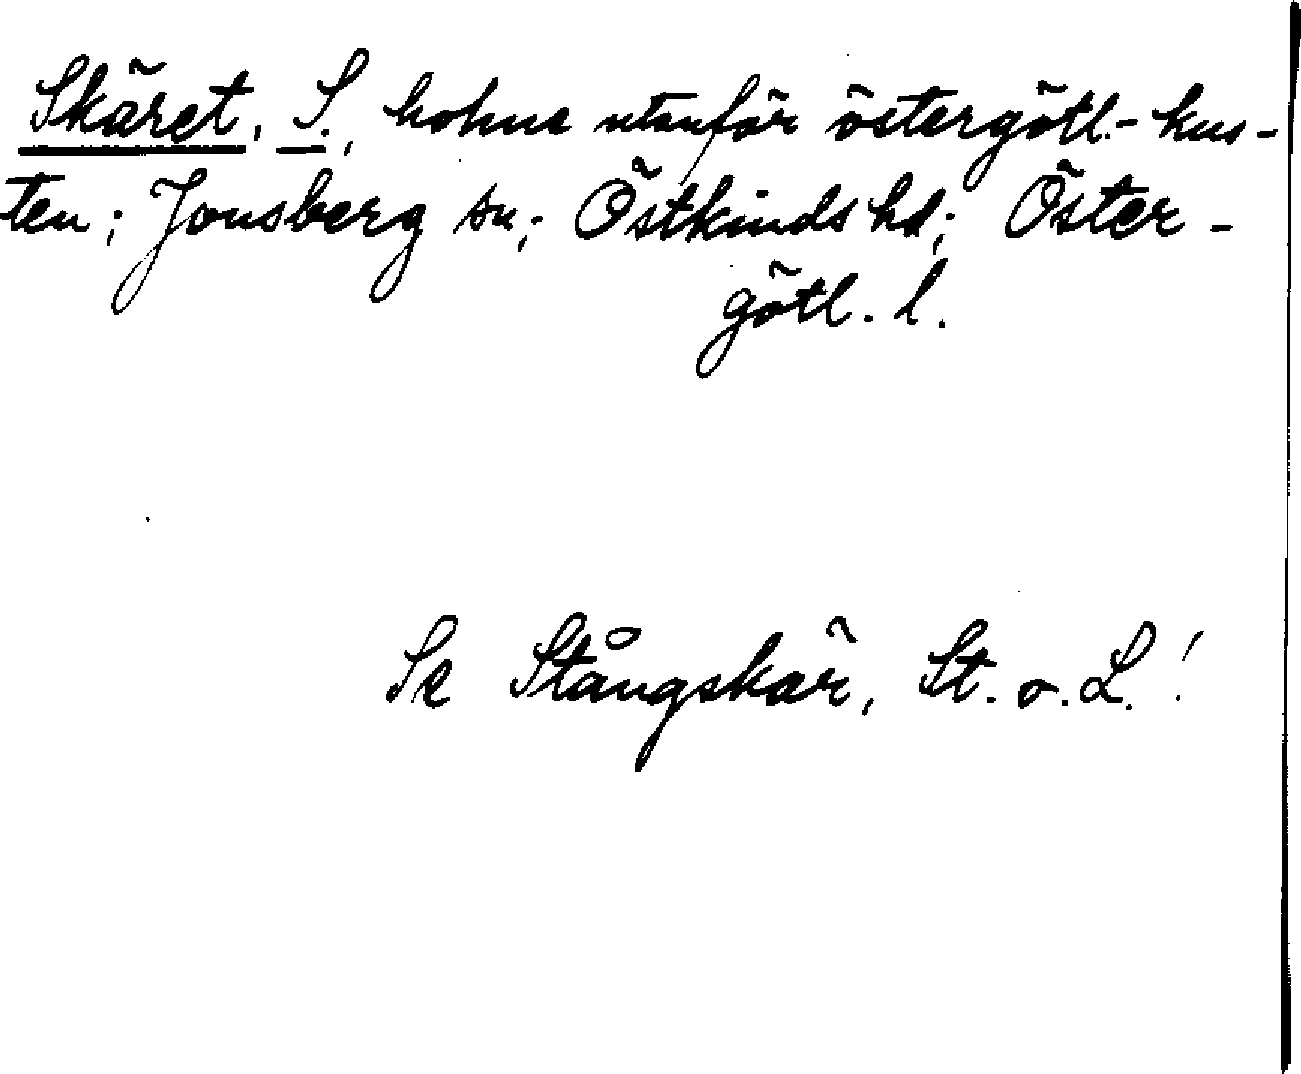 Skäret, S., holme utanför östergötl.-kus-
ten; Jonsberg sn; Östkinds hd; Öster-
götl. l.
Se Stångskär, St. o. L.!